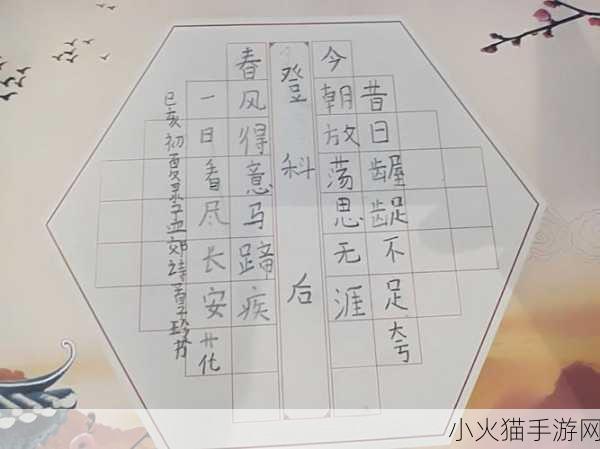 昔日龌龊不足夸
今朝放荡思无涯
登科后
春风得意马蹄疾
一日看尽长安花
己亥初夏录孟郊诗 书
小火猫手游网